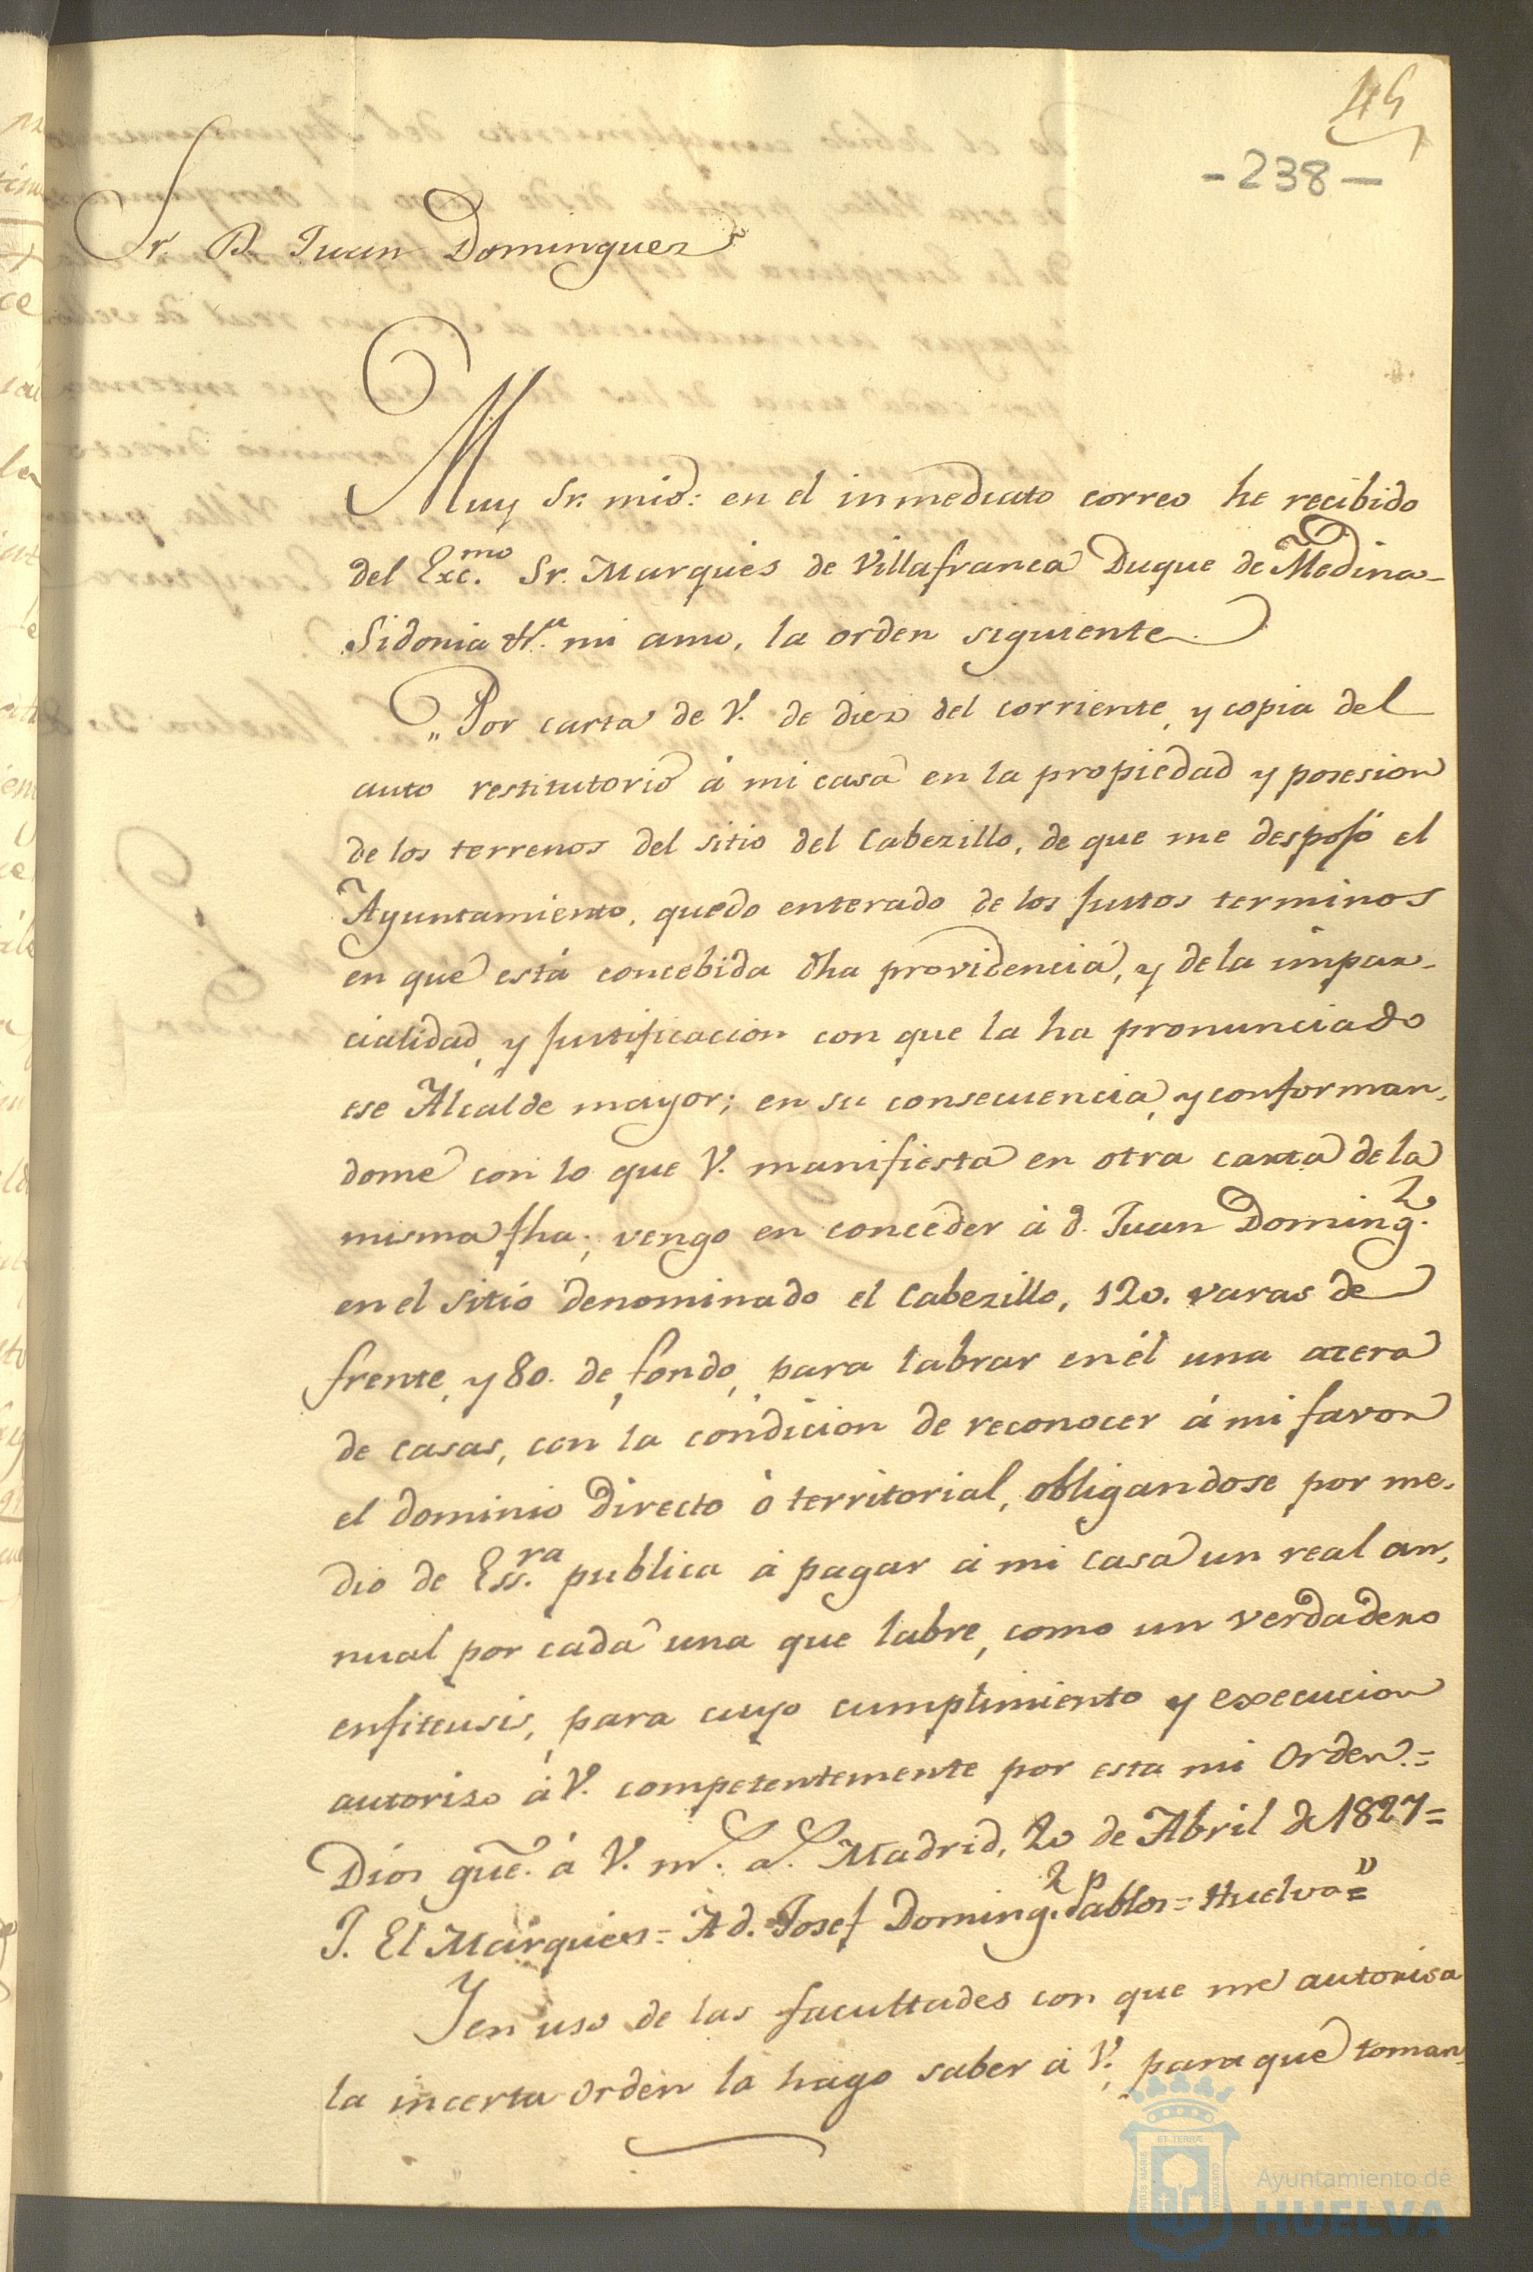 45
-238-
Sr. D. Juan Dominguez
Muy Sr. mio: en el inmediato correo he recibido
del Exc.mo Sr. Marques de Villafranca Duque de Medina-
Sidonia &.a mi amo, la orden siguiente
„Por carta de V. de diez del corriente, y copia del
auto restitutorio á mi casa en la propiedad y posesion
de los terrenos del sitio del Cabezillo, de que me despojó el
Ayuntamiento, quedo enterado de los justos terminos
en que está concebida dha providencia, y de la impar-
cialidad, y justificacion con que la ha pronunciado
ese Alcalde mayor; en su consecuencia, y conforman-
dome con lo que V. manifiesta en otra carta de la
misma fha; vengo en conceder á d. Juan Doming.z
en el sitio denominado el Cabezillo, 120. varas de
frente, y 80. de fondo, para labrar en él una azera
de casas, con la condicion de reconocer á mi favor
el dominio directo ó territorial, obligandose por me-
dio de Ess.ra publica á pagar á mi casa un real an-
nual por cada una que labre, como un verdadero
enfiteusis, para cuyo cumplimiento y execucion
autorizo á V. competentemente por esta mi Orden.=
Dios gue. á V. m.s a.s Madrid, 20 de Abril de 1827=
P. El Marques= A d. Josef Doming.z Pablos= Huelva="
Y en uso de las facultades con que me autorisa
la incerta orden la hago saber á V. para que toman-
Ayuntamiento de
HUELVA